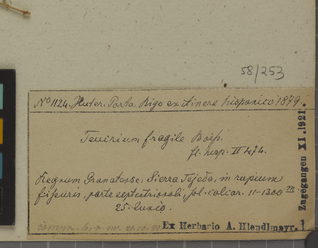 58/253
No 1124. Huter, Porta, Rigo ex itinere hispanico 1879.
Teucrium fragile Boiss.
fl. hisp. II 474.
Regnum Granatense; Sierra Tejeda, in rupium
fissuris, parte septentrionali, sol. calcar. 11-1300
25. Junio.
Ex Herbario A. Hiendlmayr.
Zugegangen XI.1921.